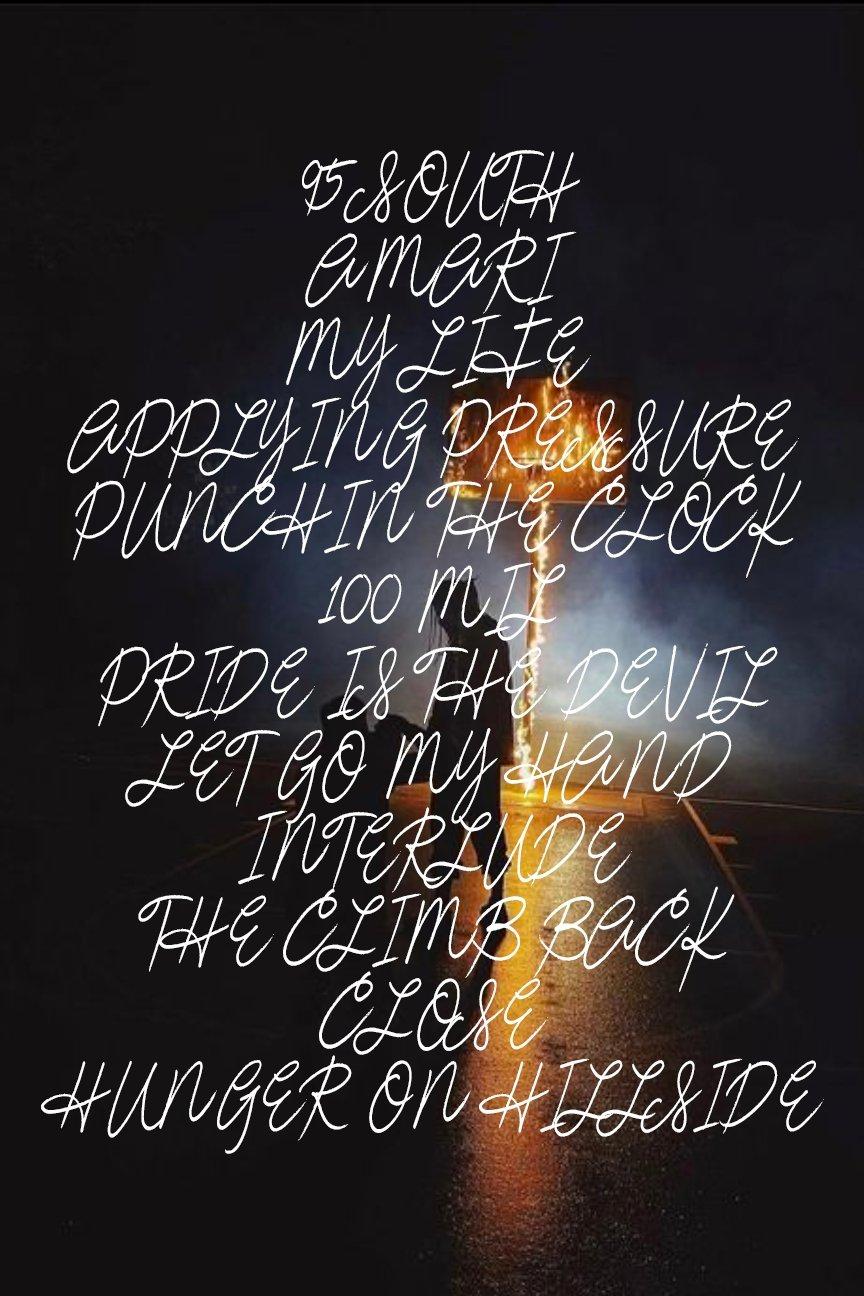 95 SOUTH
AMARI
MY LIFE
APPLYING PRESSURE
PUNCHIN THE CLOCK
100 MIL
PRIDE IS THE DEVIL
LET GO MY HAND
INTERLUDE
THE CLIMB BACK
CLOSE
HUNGER ON HILLSIDE